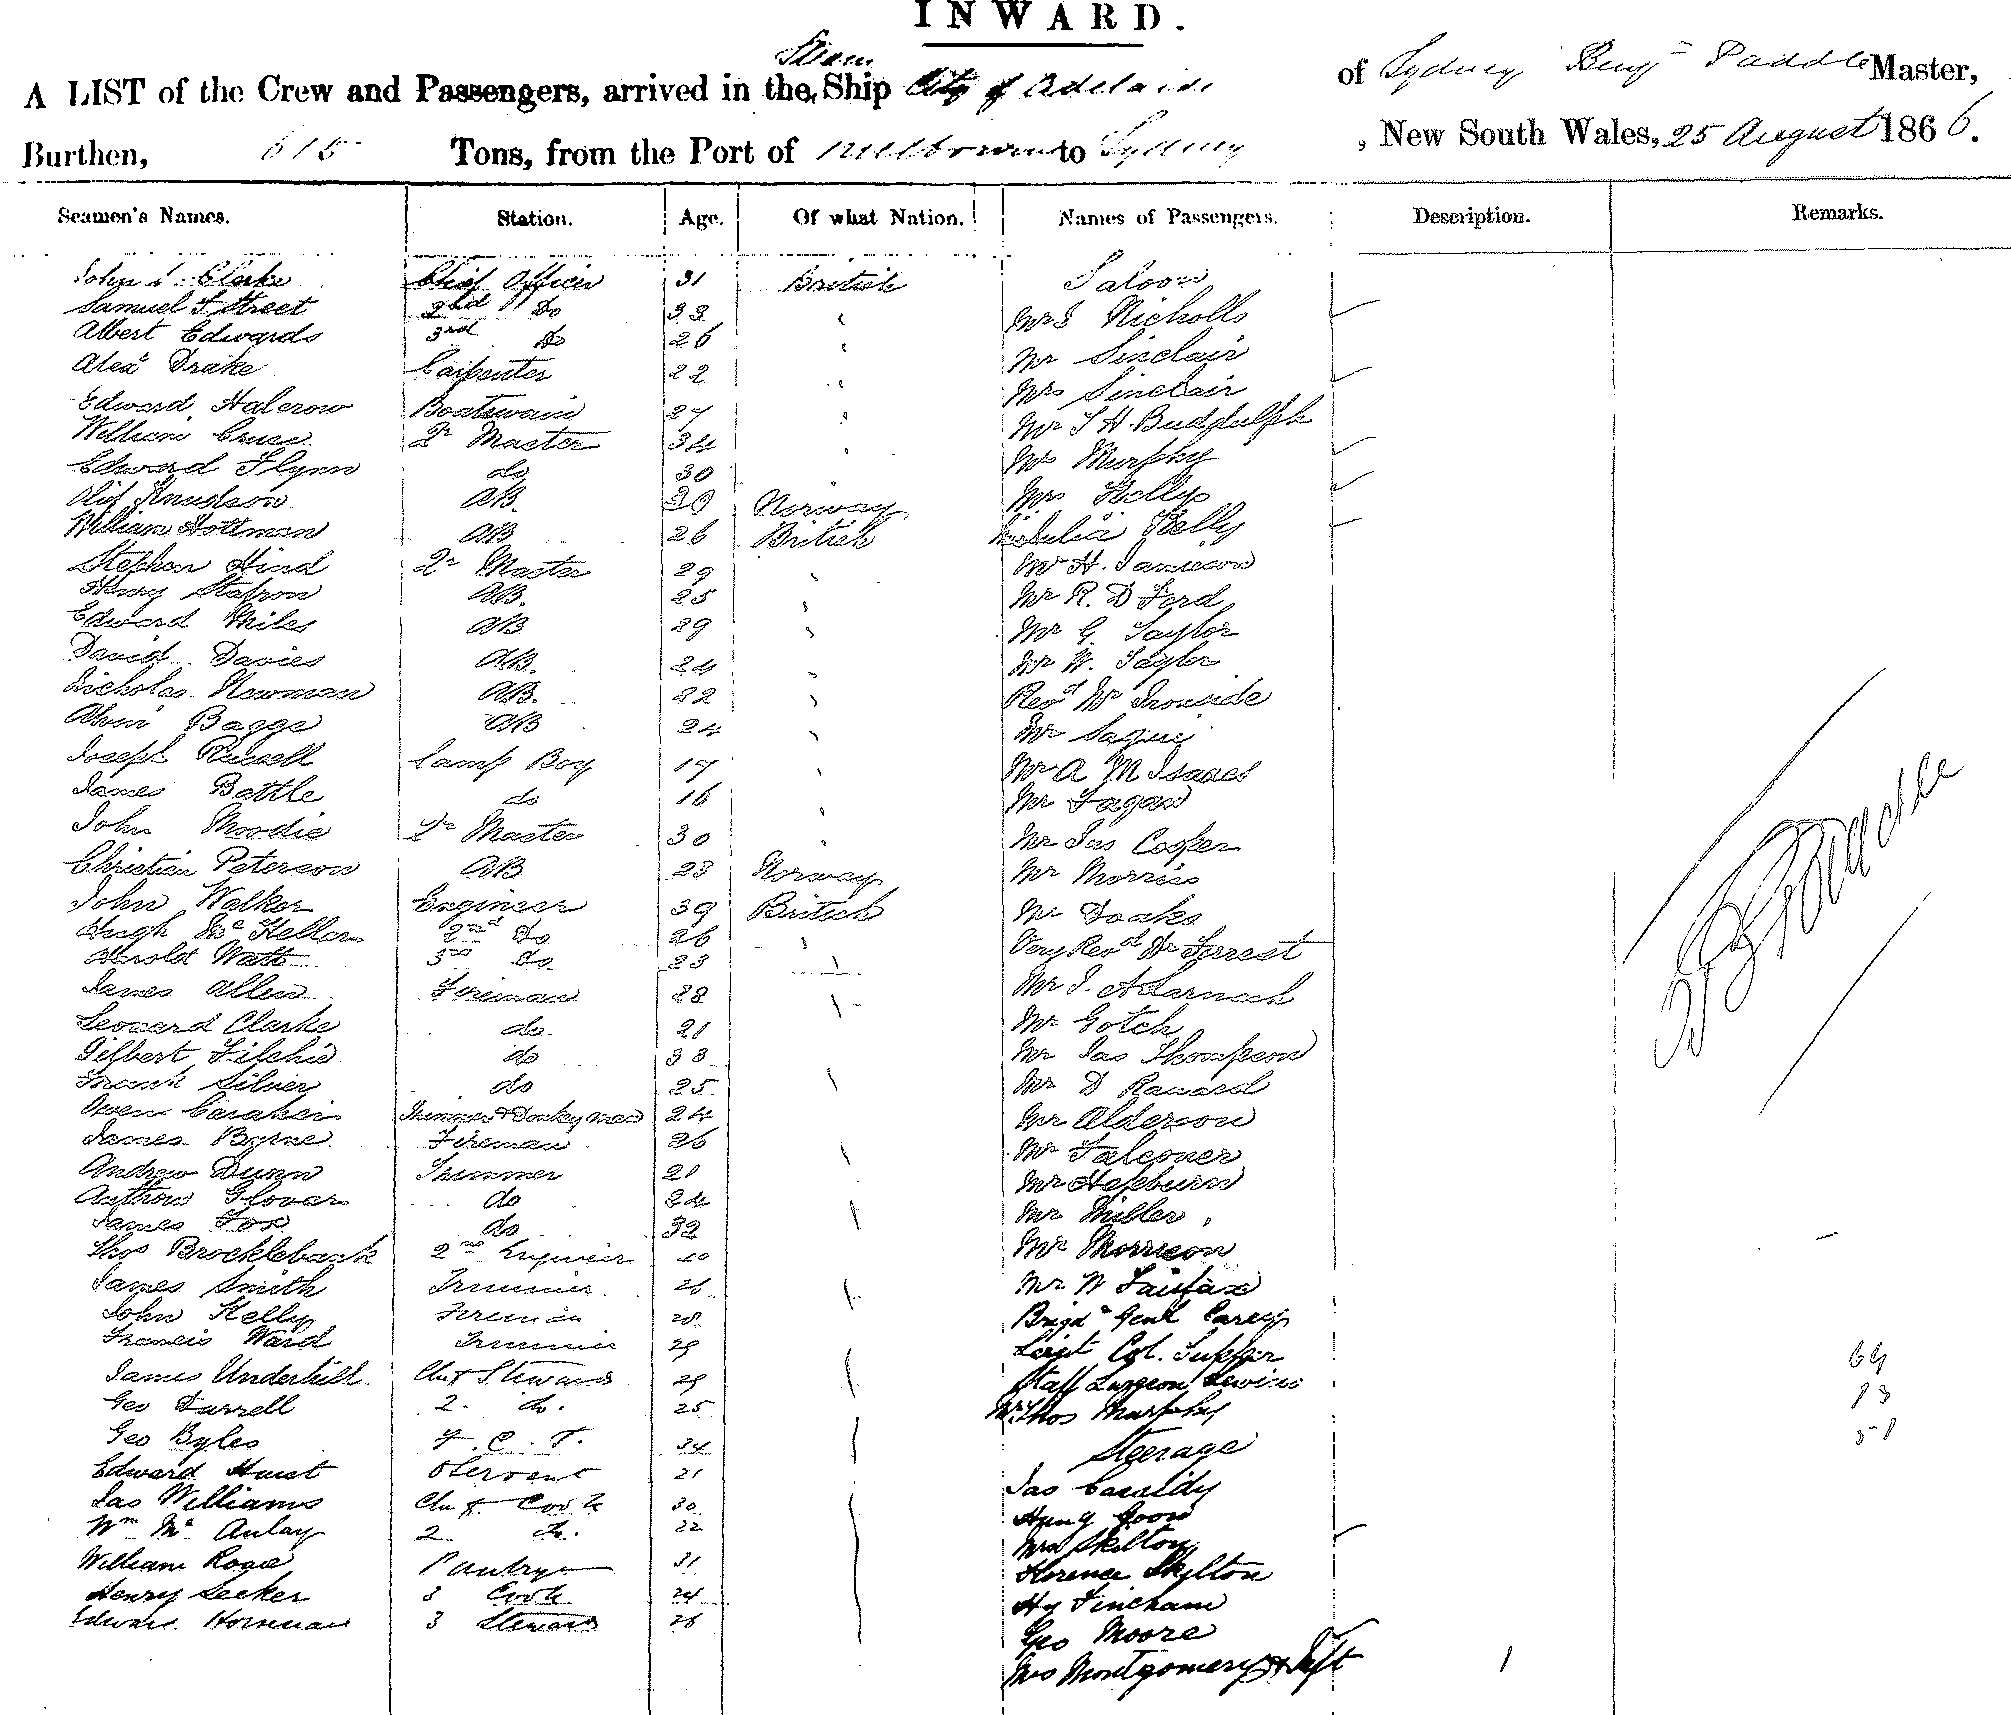 INWARD.
A LIST of the Crew and Passengers, arrived in the Steam Ship City of Adelaide of Sydney Benjn Paddle Master,
Burthen, 615 Tons, from the Port of Melbourne to Sydney, New South Wales, 25 August 1866.
Seamen's Names. Station. Age. Of what Nation. Names of Passengers. Description. Remarks.
John Clarke Chief Officer 31 British Saloon
Samuel S Street 2nd Do 33 Mrs Nicholls
Albert Edwards 3rd do 26 Mr Sinclair
Alexr Drake Carpenter 22 Mrs Sinclair
Edward Halcrow Boatswain 27 Mr T H Buddulph
William Cruse Qr Master 34 Mrs Murphy
Edward Flynn do 30 Mrs Kelly
Olif Knudson AB. 20 Norway Julia Kelly
William Hottman AB 26 British Mr H. Jamieson
Stephen Hind Qr Master 29 Mr R. D Ford
Henry AB. 25 Mr G. Taylor
Edward Miles AB 29 Mr W. Taylor
David Davies AB. 24 Revd Mr Ironside
Nicholas Newman AB. 22 Mr
Baggs AB 24 Mr A M Isaacs
Joseph Russell Lamp Boy 17 Mr Fagan
James Battle do 16 Mr Jas Cooper
John Moodie Qr Master 30 Mr Morris
Christian Peterson AB 23 Norway Mr Doaks
John Walker Engineer 39 British Very Revd Dr Forrest
Hugh McKellar 2nd Do 26 Mr J. A Larnach
Harold Watt 3rd Do 23 Mr Gotch
James Allen Fireman 28 Mr Jas Thompson
Leonard Clarke do 21 Mr D
Gilbert do 33 Mr Alderson
Frank Silver do 25 Mr Falconer
Owen Trimmer & Donkeyman 24 Mr Hepburn
James Byrne Fireman 26 Mr Miller
Andrew Dunn Trimmer 21 Mr Morrison
Glover do 24 Mr W Fairfax
James Fox do 32 Brigd Genl Carey
Thos Brocklebank 2nd Engineer 40 Lieut Col.
James Smith Trimmer 26 Staff Surgeon Lewins
John Kelly Fireman 28 Mr Thos Murphy
Francis Ward Trimmer 29 Steerage
James Underhill Chief Steward 29 Jas Cassidy
Geo Darrell 2 do. 25 Hung Goon
Geo Byles F. C. S. 34 Mrs Skilton
Edward Hurst Servant 21 Florence Skylton
Jas Williams Chief Cook 30 Hy Fincham
Wm McAulay 2 do. 22 Geo Moore
William Rogie Pantry 31 Mrs Montgomery & Inft 1
Henry Seeker 3 Cook 24
Edward Horneman 3 Steward 26
64
13
51